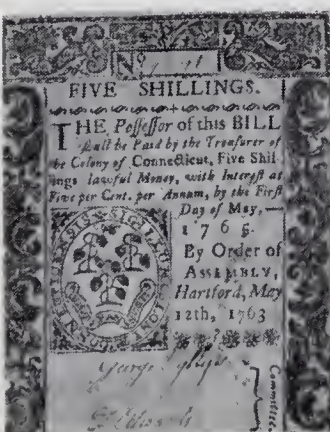 No
FIVE SHILLINGS.
THE Poſſeſſor of this BILL
ſhall be Paid by the Treaſurer of
the Colony of Connecticut, Five Shil-
lings lawful Money, with Intereſt at
Five per Cent. per Annum, by the Firſt
Day of May,
176
By Order of
ASSEMBLY,
Hartford, May
12th, 1763
George
Committee